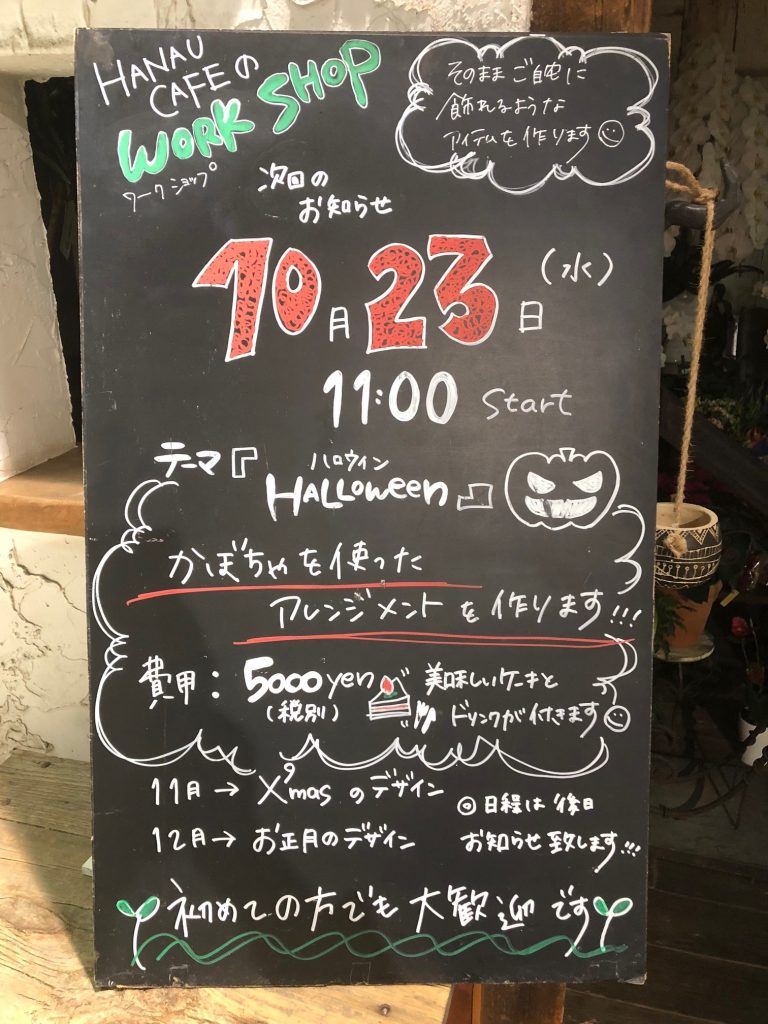 HANAU
CAFEの
WORK SHOP
ワークショップ
そのままご自宅に
飾れるような
アイテムを作ります
次回の
お知らせ
10月23日(水)
11:00 Start
ハロウィン
テーマ『HALLOWeen』
かぼちゃを使った
アレンジメントを作ります!!!
費用: 5000yen
(税別)
美味しいケーキと
ドリンクが付きます
11月→X'masのデザイン
12月→お正月のデザイン
◎日程は後日
お知らせ致します!!!
初めての方でも大歓迎です